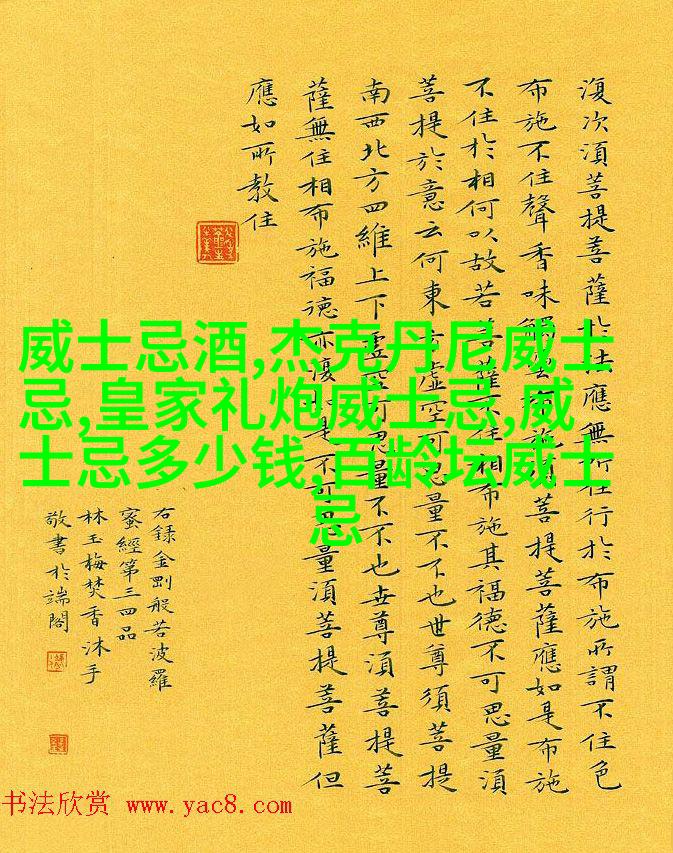 復次湏菩提菩薩於法應無所住行於布施所謂不住色
布施不住聲香味觸法布施湏菩提菩薩應如是布施
不住於相何以故若菩薩不住相布施其福德不可思量湏
菩提於意云何東方虛空可思量不不也世尊須菩提
南西北方四維上下虛空可思量不不也世尊湏菩提菩
薩無住相布施福德亦復如是不可思量湏菩提菩薩但
應如所教住
右錄金剛般若波羅
蜜經第三四品
林玉梅焚香沐手
敬書於端閣
威士忌酒,杰克丹尼威士
忌,皇家礼炮威士忌,威
士忌多少钱,百龄坛威士
忌
书法欣赏 www.yac8.com